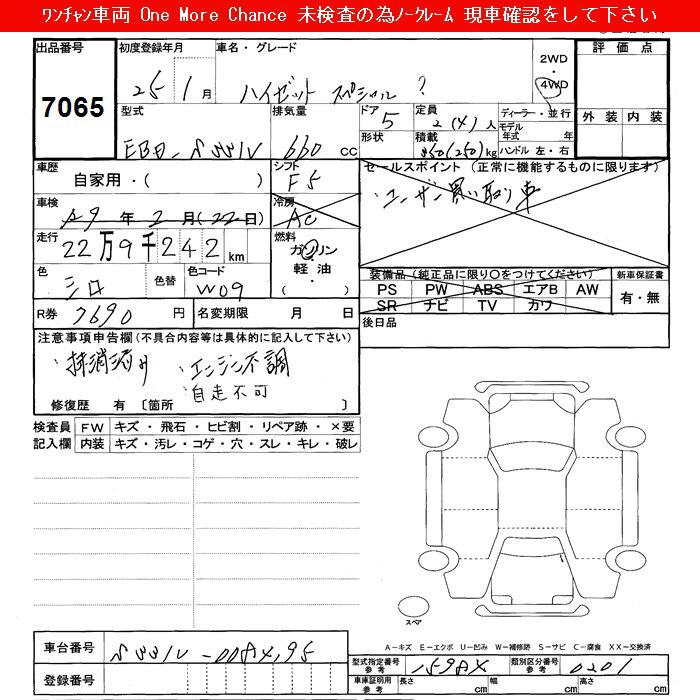 ワンチャン車両 One More Chance 未検査の為ノークレーム 現車確認をして下さい
出品番号 初度登録年月 車名・グレード 2WD 評価点
7065 25 1月 ハイゼット スペシャル ? ・4WD
型式 排気量 ドア 定員 ディーラー・並行 外装 内装
5 2(4)人 モデル年式 年
EBD-S331V 660 cc 形状 積載 350(250)kg ハンドル 左・右
車歴 シフト セールスポイント(正常に機能するものに限ります)
自家用・( ) F5 ・ユーザー買い取り車
車検 冷房
29年 2月(22日) AC
走行 燃料
22万9千242km ガソリン
色 色替 色コード 軽油・
シロ W09 ( )
装備品(純正品に限り○をつけてください) 新車保証書
PS PW ABS エアB AW 有・無
SR ナビ TV カワ
R券 7690円 名変期限 月 日 後日品
注意事項申告欄(不具合内容等は具体的に記入して下さい)
・抹消済み ・エンジン不調
・自走不可
修復歴 有〔箇所 〕
検査員 FW キズ・飛石・ヒビ割・リペア跡・×要
記入欄 内装 キズ・汚レ・コゲ・穴・スレ・キレ・破レ
スペア
A-キズ E-エクボ U-凹み W-補修跡 S-サビ C-腐食 XX-交換済
車台番号 S331V-
型式指定番号参考 1598X 類別区分番号参考 0201
登録番号 車庫証明用参考 長さ cm 幅 cm 高さ cm